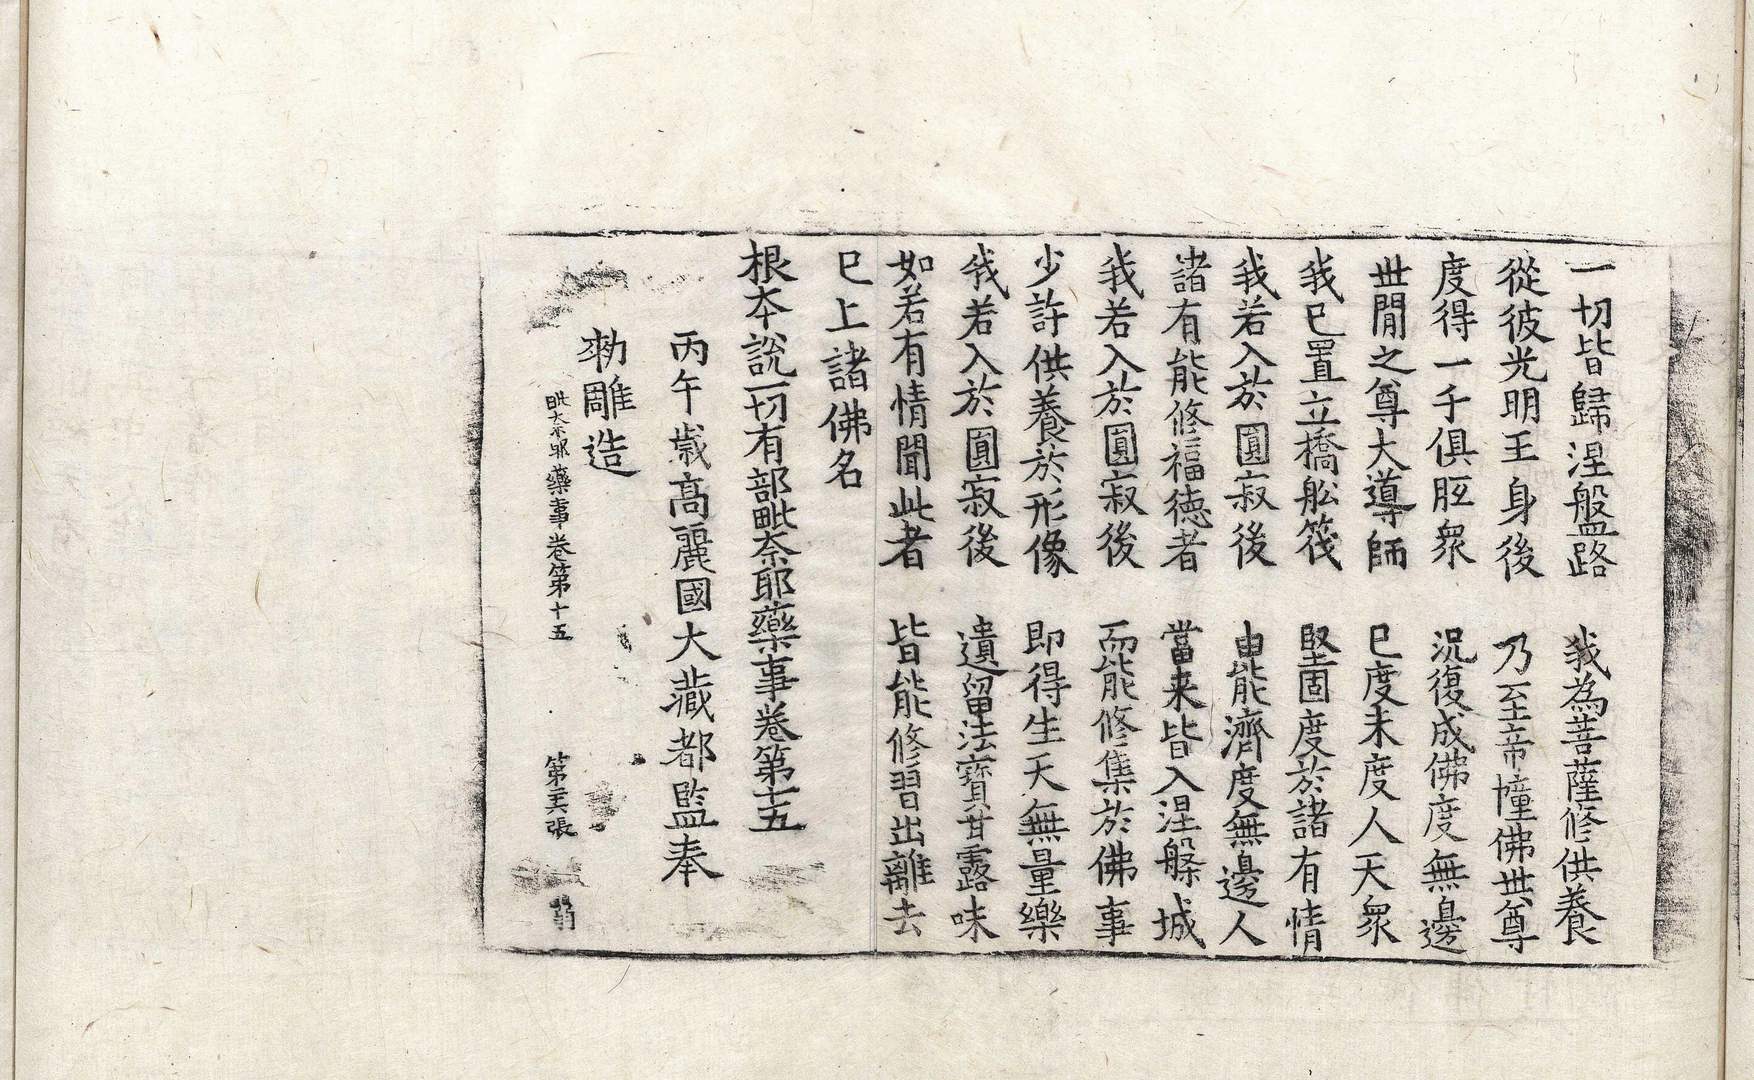 一切皆歸涅盤路　我為菩薩修供養
從彼光明王身後　乃至帝幢佛世尊
度得一千俱胝衆　況復成佛度無邊
世間之尊大導師　已度未度人天衆
我已置立橋舩筏　堅固度於諸有情
我若入於圓寂後　由能濟度無邊人
諸有能修福德者　當来皆入涅槃城
我若入於圓寂後　而能修集於佛事
少許供養於形像　即得生天無量樂
我若入於圓寂後　遺留法寶甘露味
如若有情聞此者　皆能修習出離去
已上諸佛名
根本說一切有部毗奈耶藥事卷第十五
丙午歲高麗國大藏都監奉
勑雕造
毗奈耶藥事卷第十五　第　張